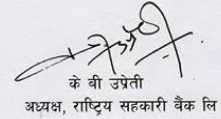 के बी उप्रेती
अध्यक्ष, राष्ट्रिय सहकारी बैंक लि